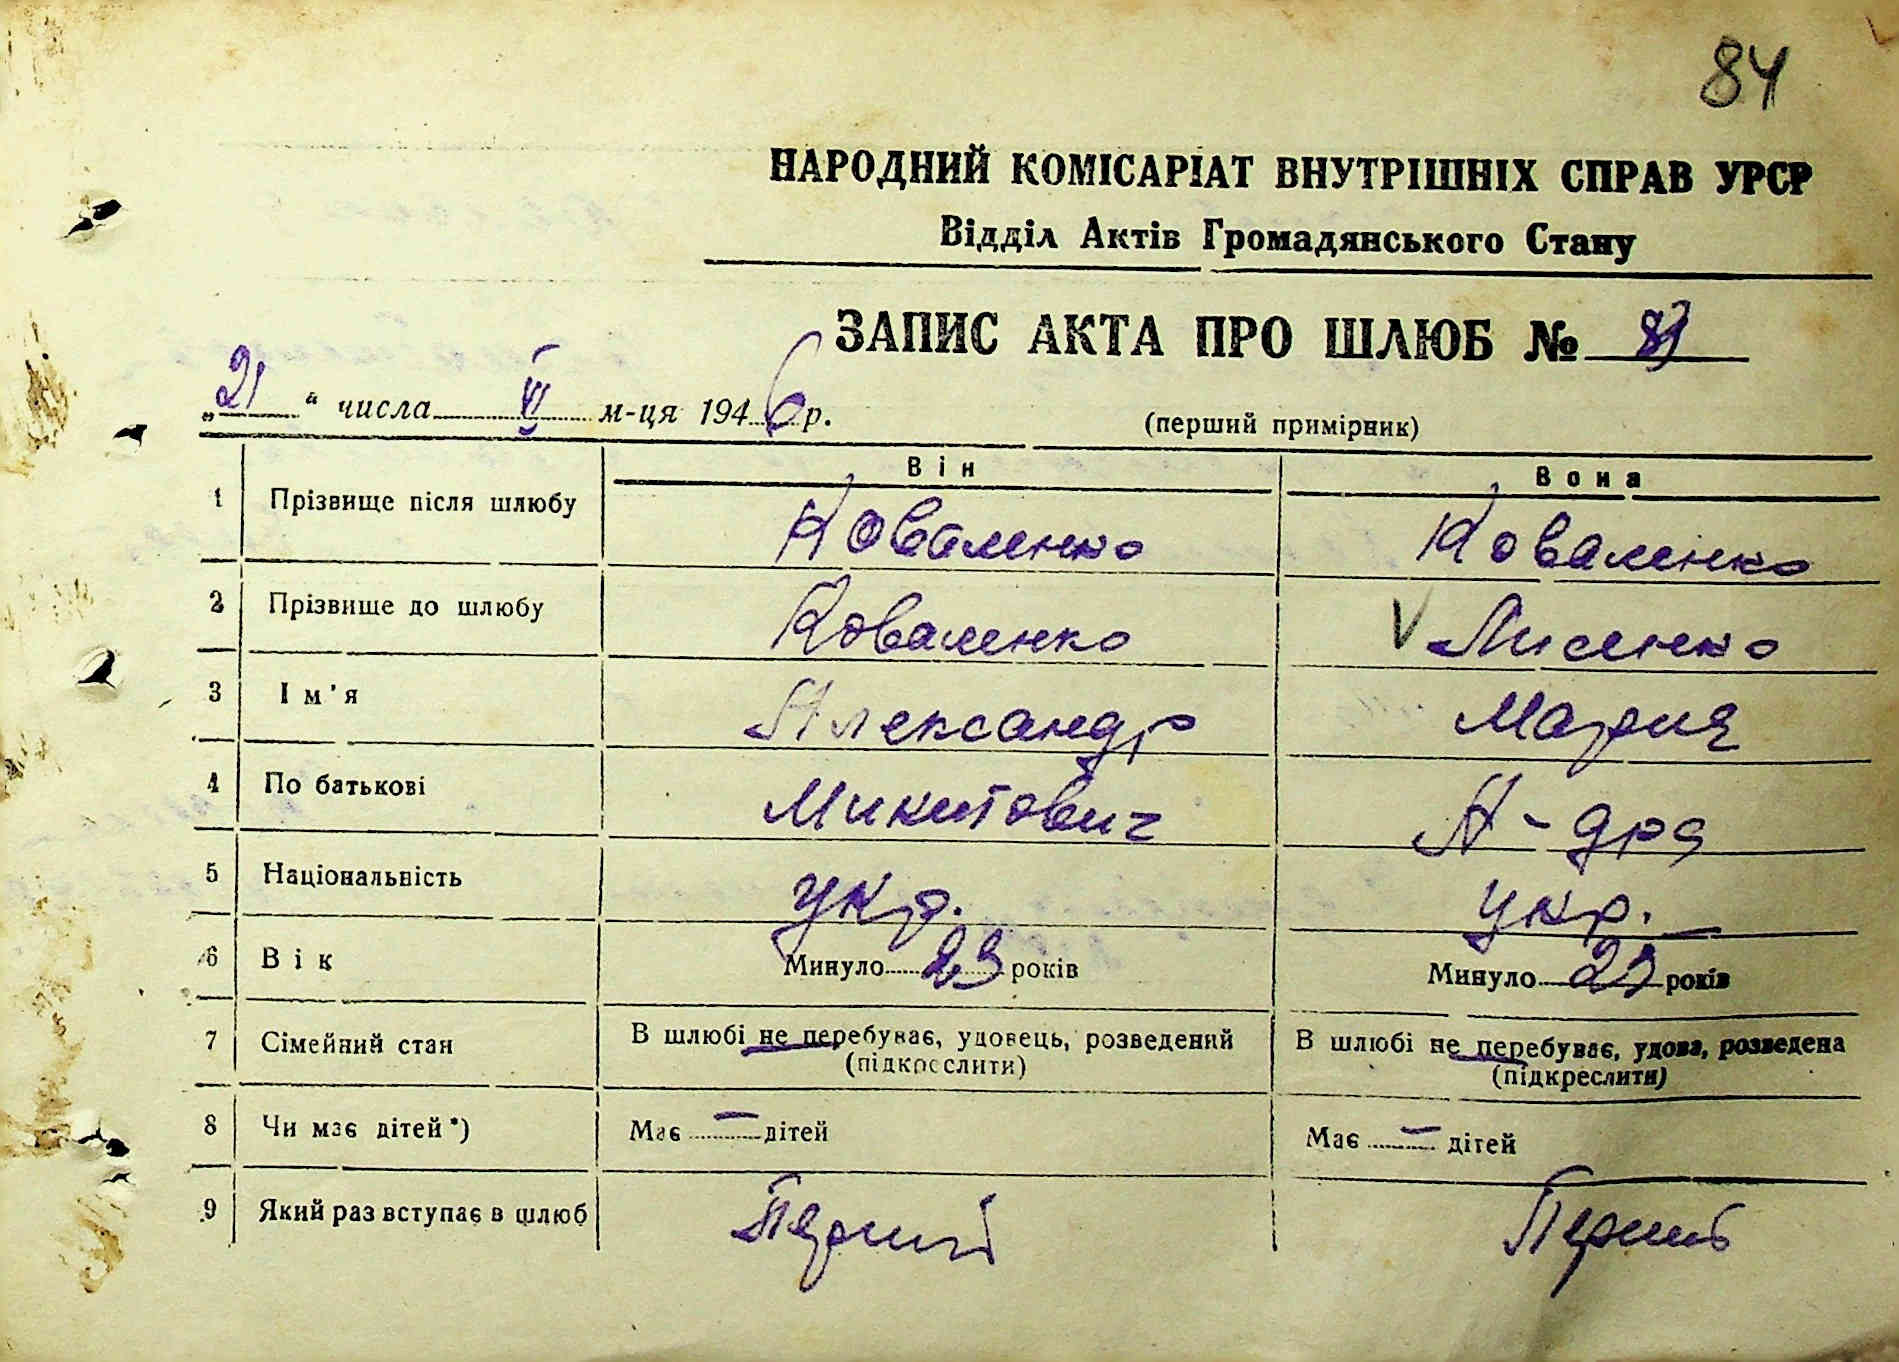 84
НАРОДНИЙ КОМІСАРІАТ ВНУТРІШНІХ СПРАВ УРСР
Відділ Актів Громадянського Стану
ЗАПИС АКТА ПРО ШЛЮБ №
„21“ числа VI м-ця 1946 р.
(перший примірник)
Він Вона
1 Прізвище після шлюбу Коваленко Коваленко
2 Прізвище до шлюбу Коваленко V Лисенко
3 Ім'я Александр Мария
4 По батькові Микитович А-дра
5 Національність укр. укр.
6 Вік Минуло 23 років Минуло років
7 Сімейний стан В шлюбі не перебуває, удовець, розведений В шлюбі не перебуває, удова, розведена
(підкреслити) (підкреслити)
8 Чи має дітей*) Має — дітей Має — дітей
9 Який раз вступає в шлюб